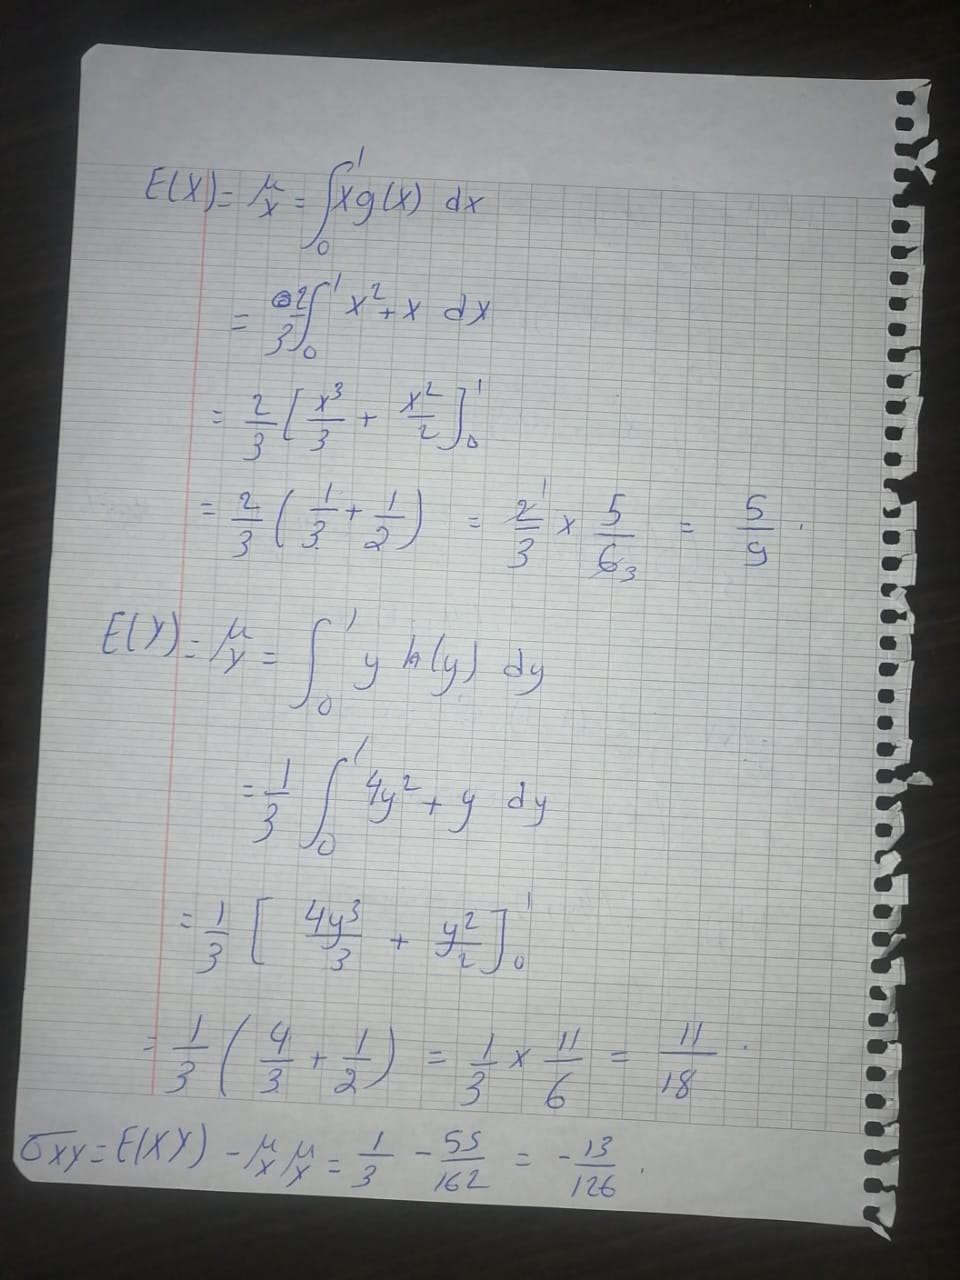 E(X) = μ_X = ∫₀¹ x g(x) dx
= 2/3 ∫₀¹ x² + x dx
= 2/3 [ x³/3 + x²/2 ]₀¹
= 2/3 ( 1/3 + 1/2 ) = 2/3 1 × 5/6 3 = 5/9 .
E(Y) = μ_Y = ∫₀¹ y h(y) dy
= 1/3 ∫₀¹ 4y² + y dy
= 1/3 [ 4y³/3 + y²/2 ]₀¹
= 1/3 ( 4/3 + 1/2 ) = 1/3 × 11/6 = 11/18 .
σ_XY = E(XY) - μ_X μ_X = 1/3 - 55/162 = - 13/126 .